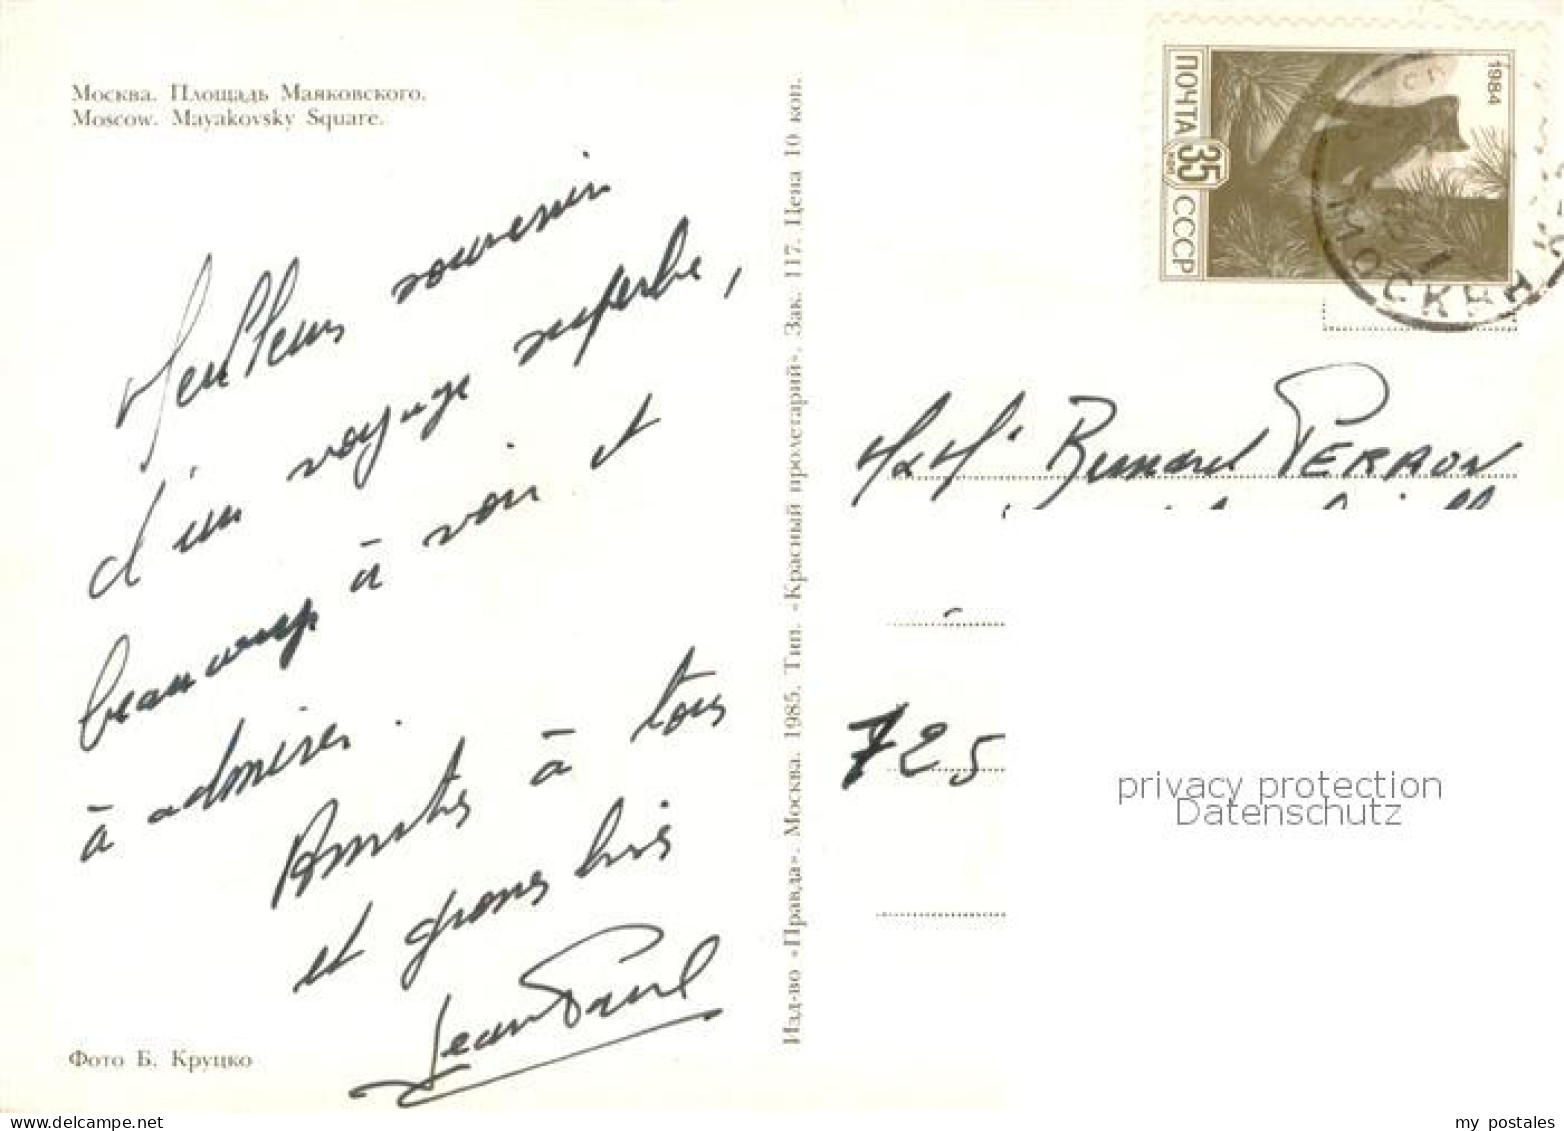 Москва. Площадь Маяковского.
Moscow. Mayakovsky Square.
Meilleur souvenir
d'un voyage superbe,
beaucoup à voir et
à admirer.
Amitiés à tous
et grosses bises
Jean Paul
Фото Б. Круцко
Изд-во «Правда». Москва. 1985. Тип. «Красный пролетарий». Зак. 117. Цена 10 коп.
1984
ПОЧТА 35 коп СССР
МОСКВА
Bernard PERRON
725
privacy protection
Datenschutz
delcampe.net
my_postales